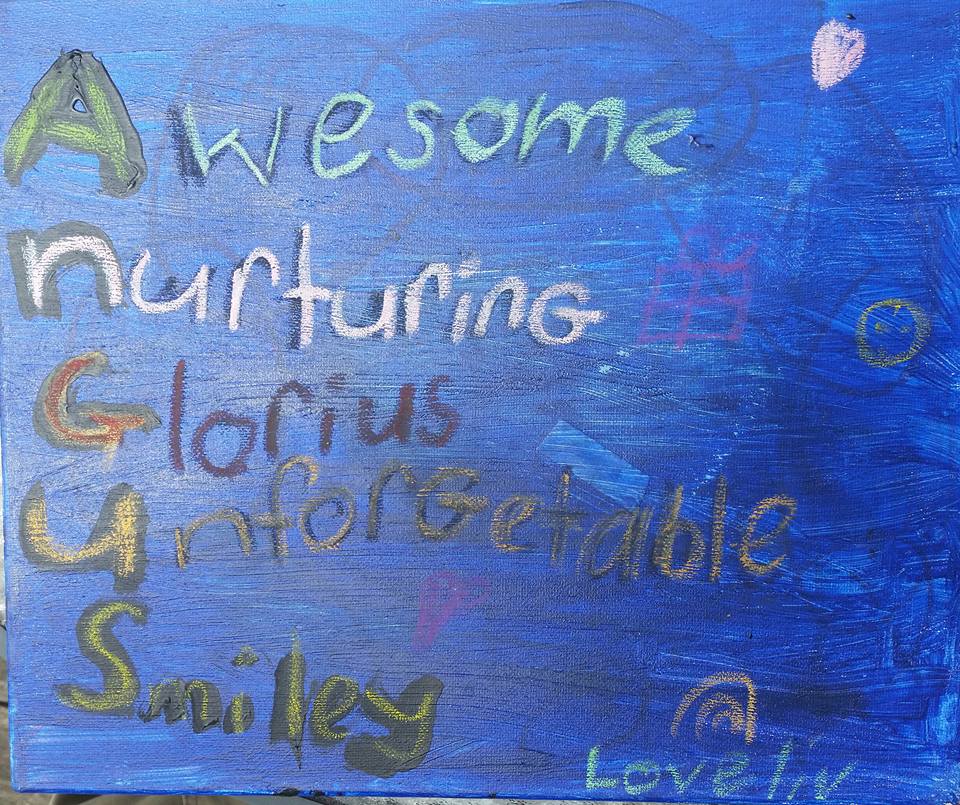 Awesome
nurturinG
Glorius
UnforGetable
Smiley
Love liv